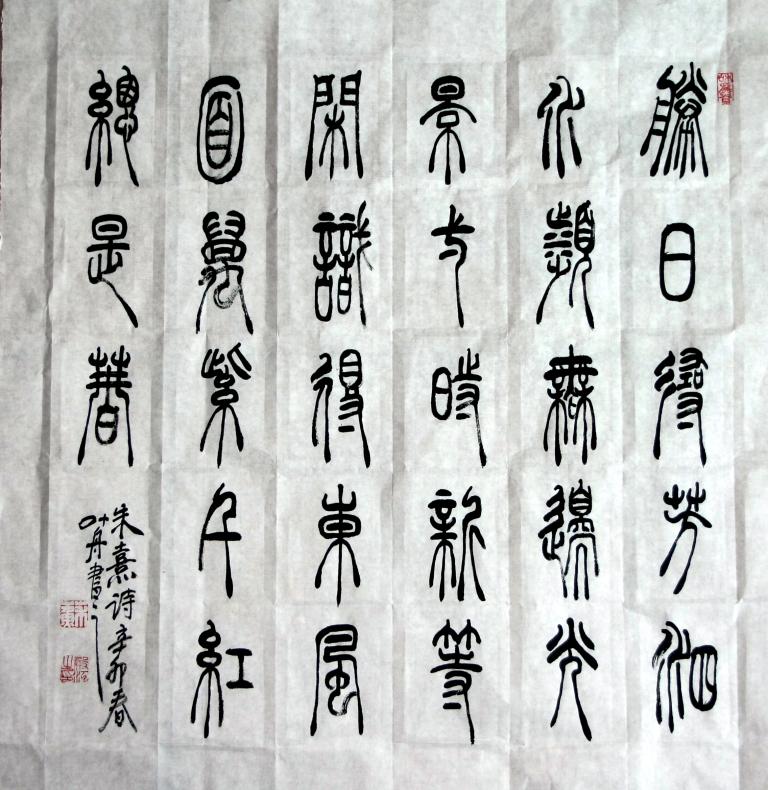 勝日尋芳泗
水濱無邊光
景一時新等
閑識得東風
面萬紫千紅
總是春
朱熹诗辛卯春
叶舟書